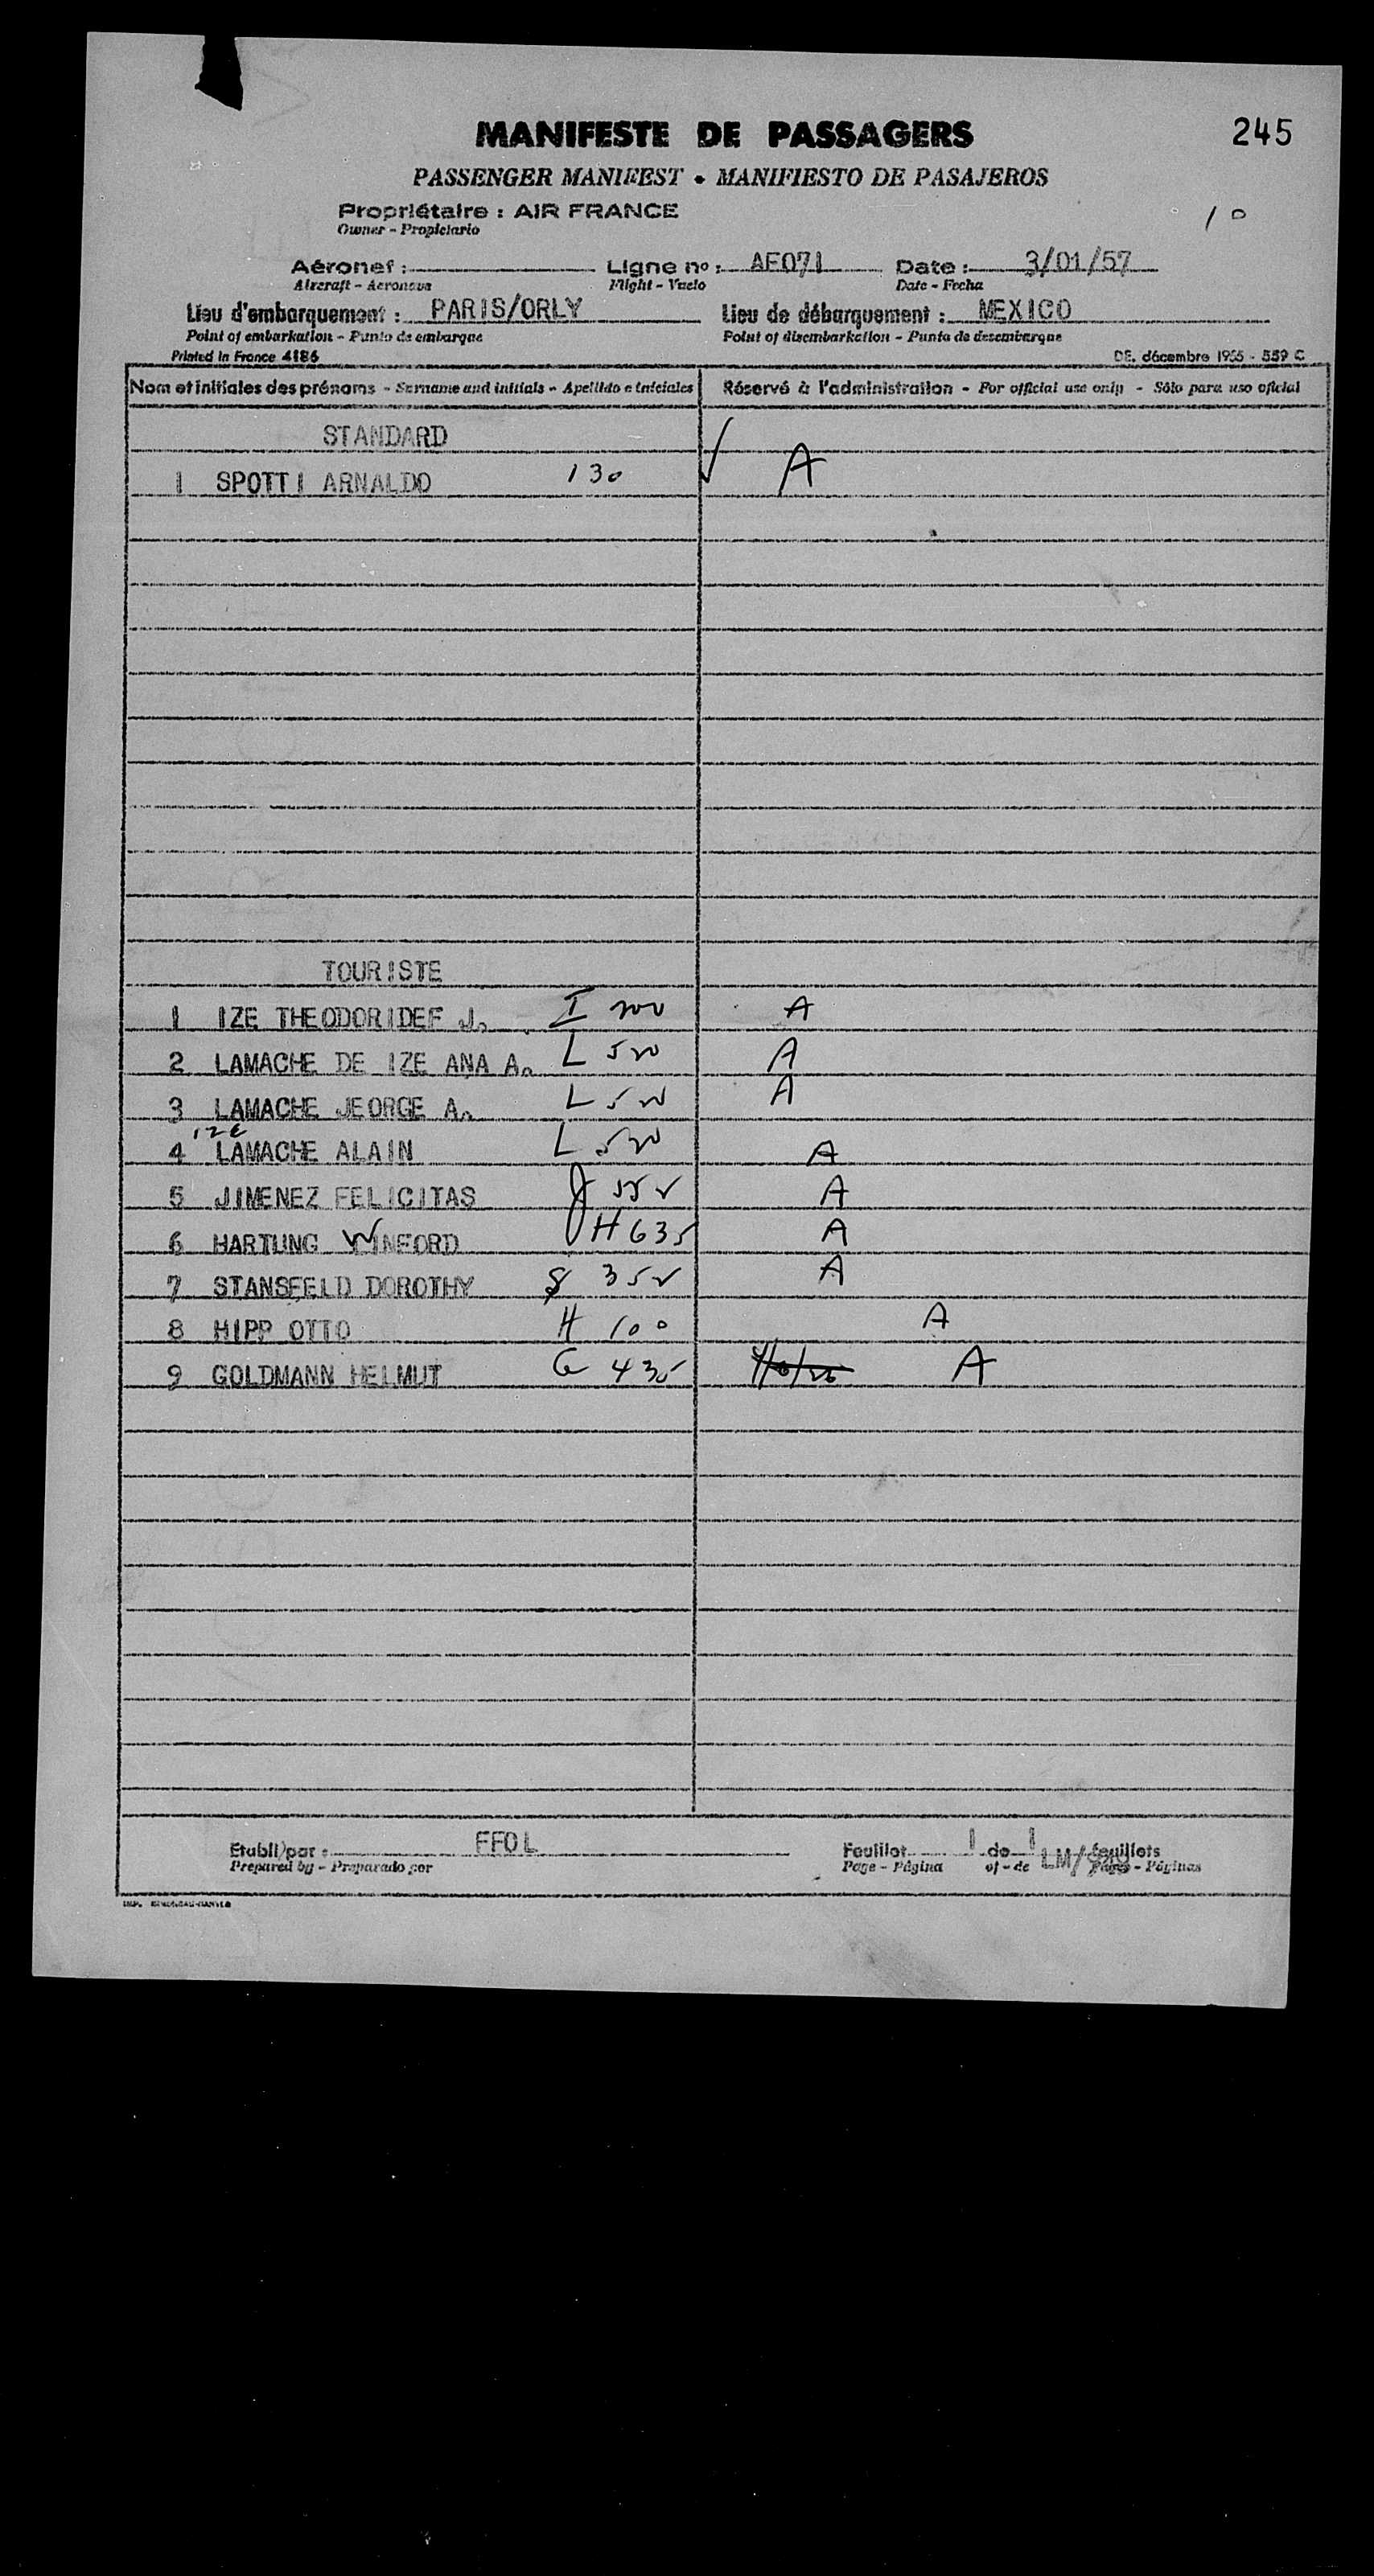 MANIFESTE DE PASSAGERS 245
PASSENGER MANIFEST • MANIFIESTO DE PASAJEROS
Propriétaire : AIR FRANCE
Owner - Propietario
10
Aéronef : Ligne nº : AF071 Date : 3/01/57
Aircraft - Aeronave Flight - Vuelo Date - Fecha
Lieu d'embarquement : PARIS/ORLY Lieu de débarquement : MEXICO
Point of embarkation - Punto de embarque Point of disembarkation - Punto de desembarque
Printed in France 4186 DE. décembre 1955 - 559 C
Nom et initiales des prénoms - Surname and initials - Apellido e iniciales Réservé à l'administration - For official use only - Sólo para uso oficial
STANDARD
1 SPOTTI ARNALDO 130 ✓ A
TOURISTE
1 IZE THEODORIDEF J. I 200 A
2 LAMACHE DE IZE ANA A. L 520 A
3 LAMACHE JEORGE A. L 520 A
IZE
4 LAMACHE ALAIN L 520 A
5 JIMENEZ FELICITAS J 552 A
6 HARTUNG WINFORD H 635 A
7 STANSFELD DOROTHY S 352 A
8 HIPP OTTO H 100 A
9 GOLDMANN HELMUT G 435 A
Etabli par : FFOL Feuillet 1 de 1 feuillets
Prepared by - Preparado por Page - Página of - de LM/ Pages - Páginas